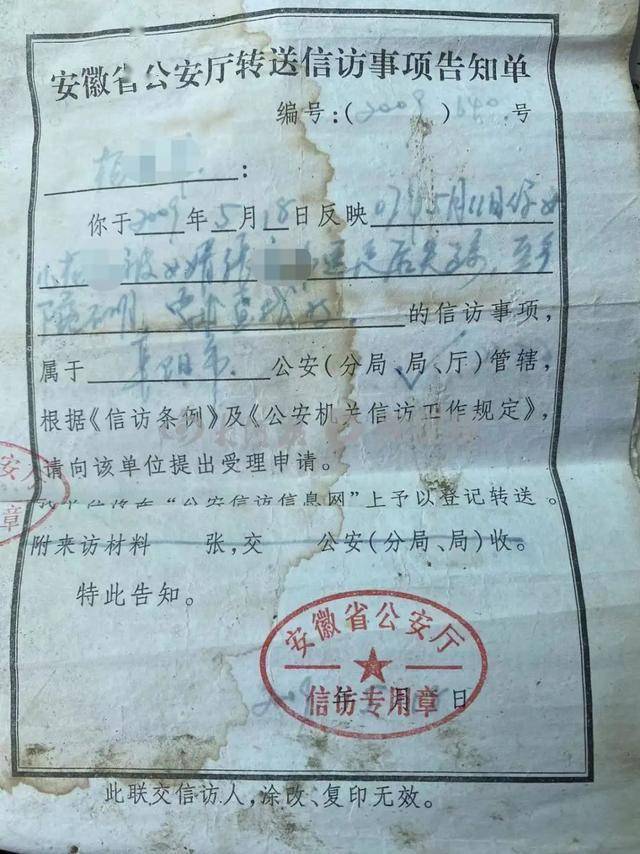 安徽省公安厅转送信访事项告知单
编号:(2009)640号
你于2009年5月18日反映07年5月11日你女
被女婿张 后失踪,至今
的信访事项,
属于阜阳市公安(分局、局、厅)管辖,
根据《信访条例》及《公安机关信访工作规定》,
请向该单位提出受理申请。
“公安信访信息网”上予以登记转送。
附来访材料 张,交 公安(分局、局)收。
特此告知。
安徽省公安厅
信访专用章
年 月 日
此联交信访人,涂改、复印无效。
安
章